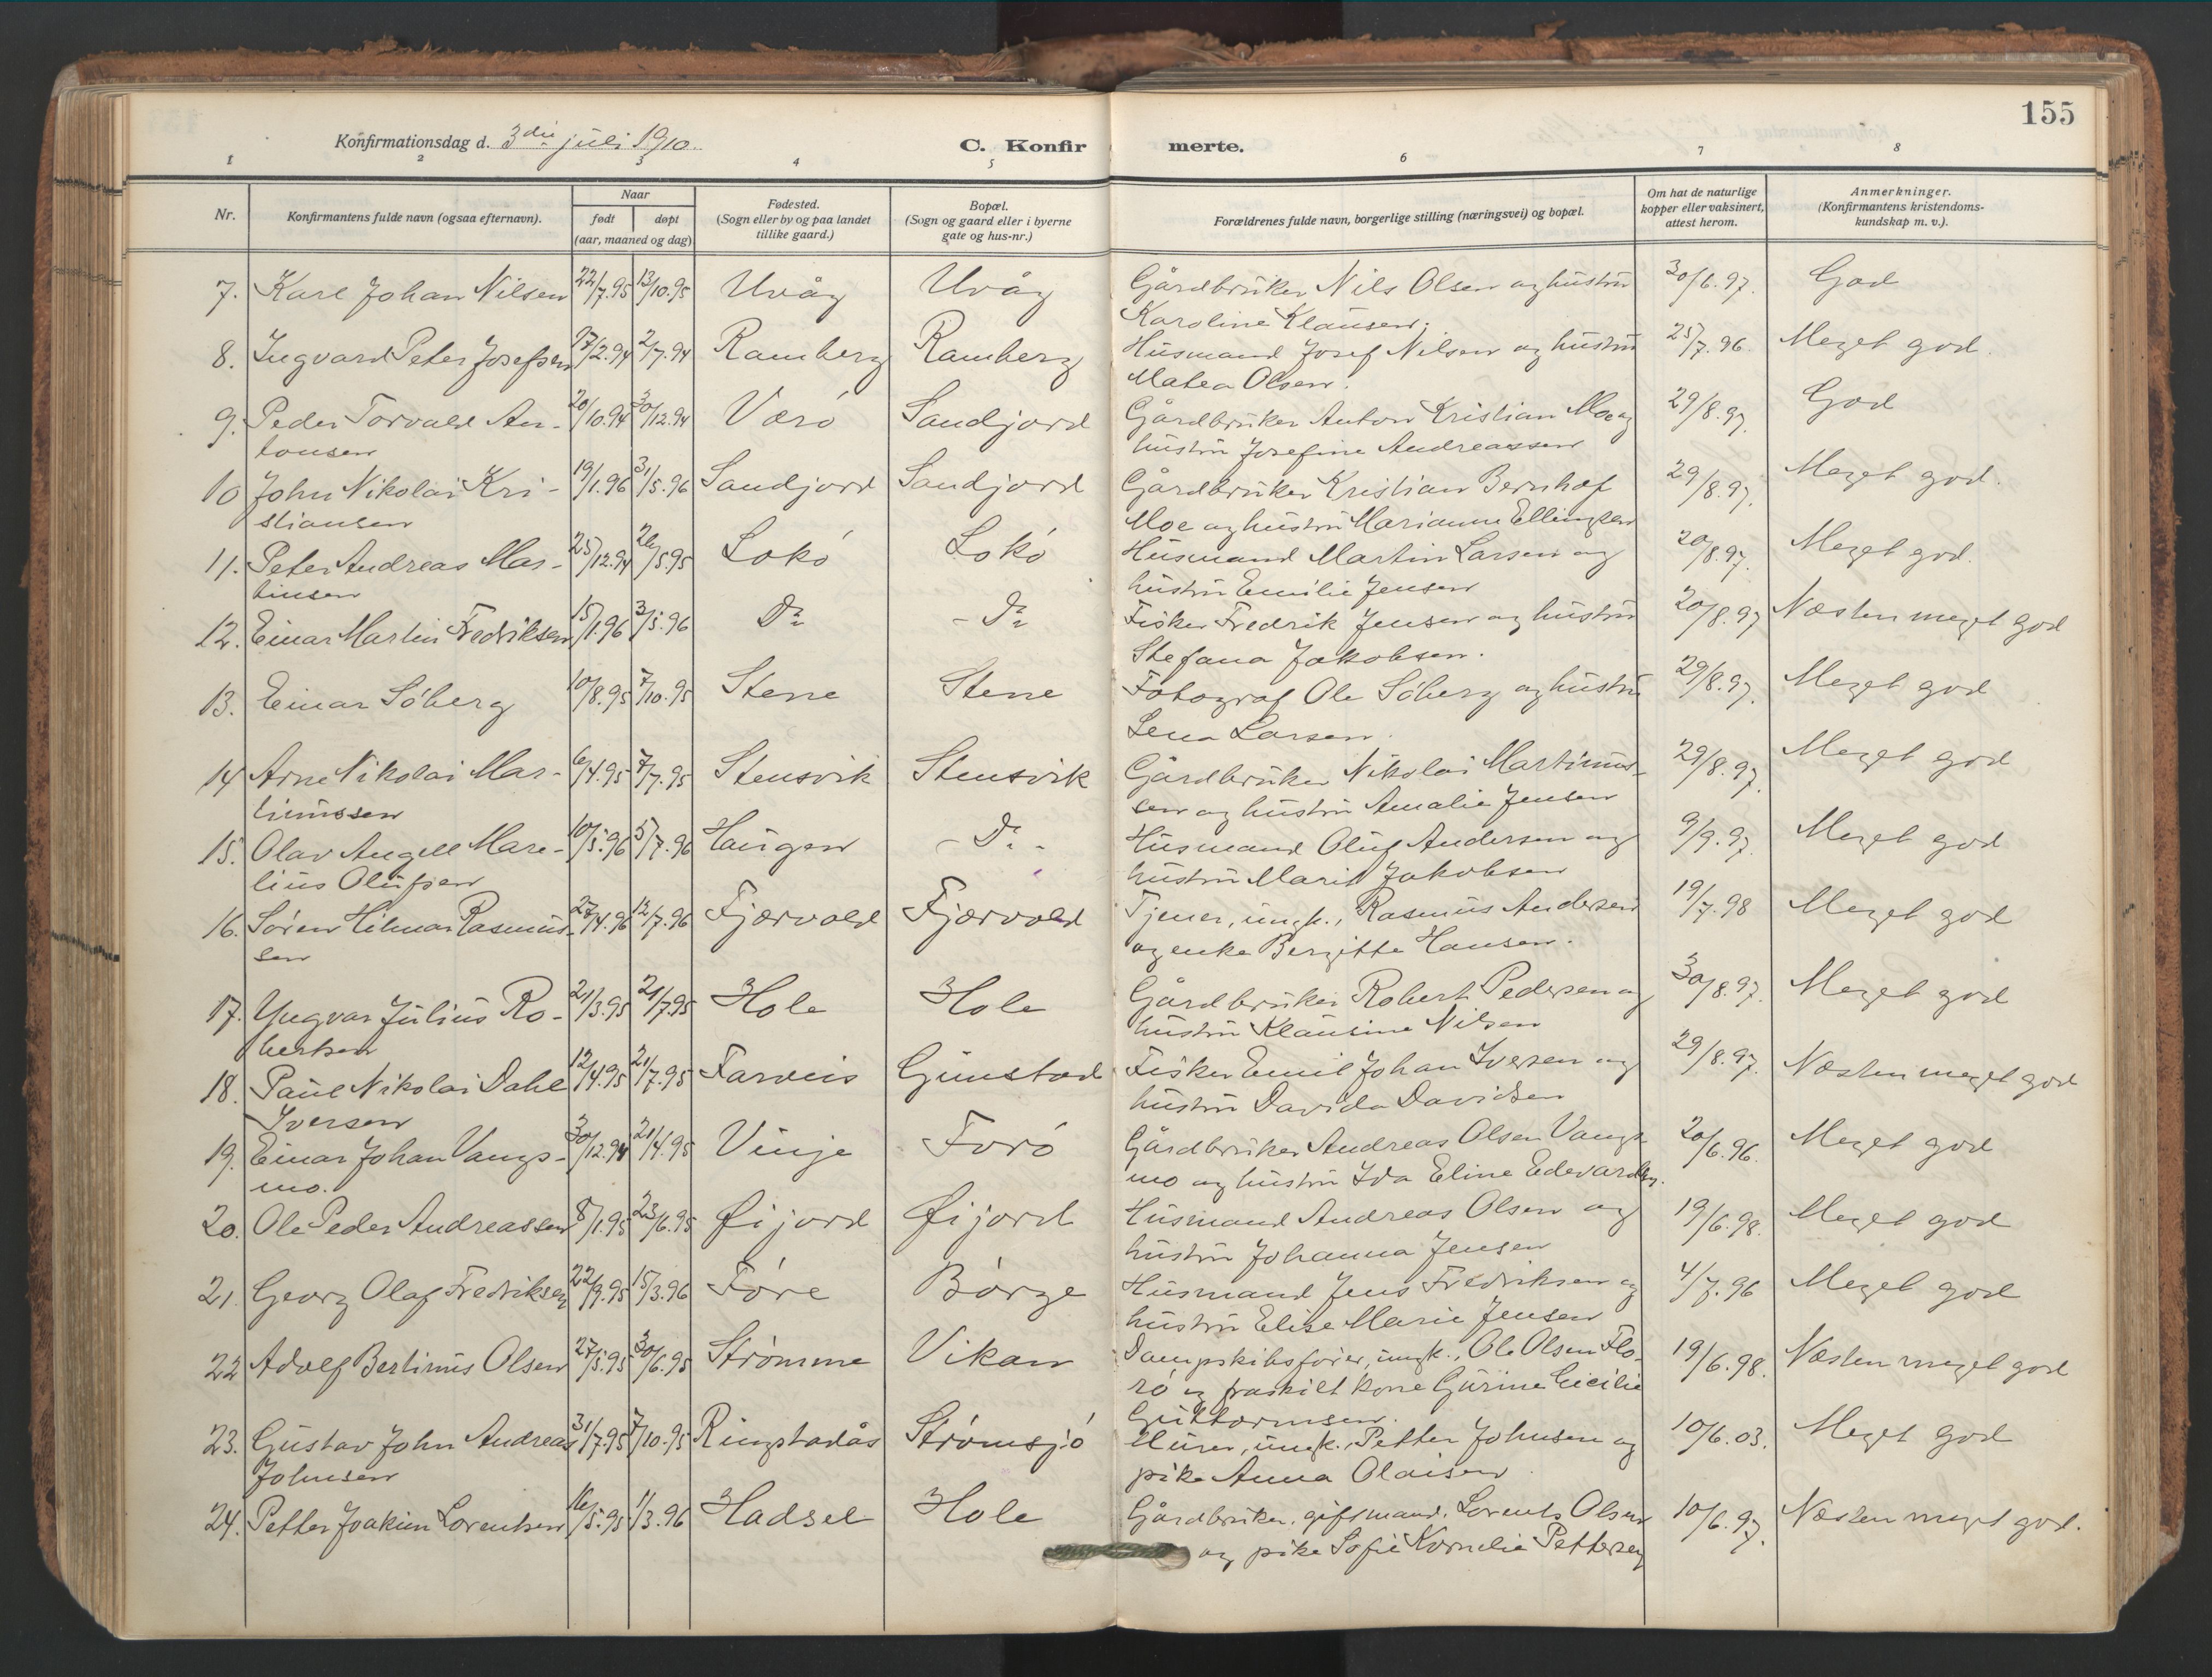 155
Konfirmationsdag d. 3die juli 1910.
C. Konfirmerte.
1 2 3 4 5 6 7 8
Nr.
Konfirmantens fulde navn (ogsaa efternavn).
Naar
født døpt
(aar, maaned og dag)
Fødested.
(Sogn eller by og paa landet
tillike gaard.)
Bopæl.
(Sogn og gaard eller i byerne
gate og hus-nr.)
Forældrenes fulde navn, borgerlige stilling (næringsvei) og bopæl.
Om hat de naturlige
kopper eller vaksinert,
attest herom.
Anmerkninger.
(Konfirmantens kristendoms-
kundskap m. v.).
7. Karl Johan Nilsen 22/7.95 13/10.95 Uvåg Uvåg Gårdbrüker Nils Olsen og hüstrü 30/6.97. God
Karoline Klausen.
8. Ingvard Peter Josefsen 27/2.94 2/7.94 Ramberg Ramberg Hüsmand Josef Nilsen og hüstrü 25/7.96. Meget god.
Matea Olsen.
9. Peder Torvald An- 20/10.94 30/12.94 Værö Sandjord Gårdbrüker Anton Kristian Moe og 29/8.97. God
tonsen hüstrü Josefine Andreassen
10 John Nikolai Kri- 19/1.96 31/5.96 Sandjord Sandjord Gårdbrüker Kristian Bernhof 29/8.97. Meget god.
stiansen Moe og hüstrü Marianne Ellingsen
11. Peter Andreas Mar- 25/12.94 26/5.95 Lokö Lokö Hüsmand Martin Larsen og 20/8.97. Meget god.
tinsen hüstrü Emilie Jensen
12. Einar Martin Fredriksen 15/1.96 3/5.96 Do - Do Fisker Fredrik Jensen og hüstrü 20/8.97 Næsten meget god
Stefana Jakobsen.
13. Einar Söberg 10/8.95 7/10.95 Stene Stene Fotograf Ole Söberg og hüstrü 29/8.97. Meget god
Lena Larsen.
14 Arne Nikolai Mar- 6/4.95 7/7.95 Stensvik Stensvik Gårdbrüker Nikolai Martinüs- 29/8.97. Meget god
tinüssen sen og hüstrü Amalie Jensen
15. Olav Angell Mare- 10/5.96 5/7.96 Haügen - Do - Hüsmand Olüf Andersen og 9/9.97. Meget god
liüs Olüfsen hüstrü Marit Jakobsen
16. Sören Hilmar Rasmüs- 27/4.96 12/7.96 Fjærvold Fjærvold Tjener, üngk., Rasmüs Andersen 19/7.98 Meget god
sen og enke Bergitte Hansen.
17. Yngvar Jüliüs Ro- 21/3.95 21/7.95 Hole Hole Gårdbrüker Robert Pedersen og 30/8.97. Meget god
bertsen hüstrü Klaüsine Nilsen
18. Paül Nikolai Dahl 12/4.95 21/7.95 Farveis Gimstad Fisker Emil Johan Iversen og 29/8.97. Næsten meget god
Iversen hüstrü Davida Davidsen
19. Einar Johan Vangs- 30/12.94 21/4.95 Vinje Forö Gårdbrüker Andreas Olsen Vangs- 20/6.96. Meget god
mo. mo og hüstrü Ida Eline Edevardsn.
20. Ole Peder Andreassen 8/1.95 23/6.95 Øijord Øijord Hüsmand Andreas Olsen og 19/6.98. Meget god
hüstrü Johanna Jensen
21. Georg Olaf Fredriksen 22/9.95 15/3.96 Före Börge Hüsmand Jens Fredriksen og 4/7.96 Meget god
hüstrü Elise Marie Jensen
22 Adolf Bertinüs Olsen 27/5.95 30/6.95 Strømme Vikan Dampskibsförer, üngk., Ole Olsen Flo- 19/6.98. Næsten meget god
rö og fraskilt kone Gürine Cecilie
Güttormsen.
23. Güstav John Andreas 31/7.95 7/10.95 Ringstadås Strømsjö Mürer, üngk., Petter Johnsen og 10/6.03. Meget god
Johnsen pike Anna Olaisen.
24. Petter Joakim Lorentsen 16/5.95 1/3.96 Hadsel Hole Gårdbrüker, gift mand, Lorents Olsen 10/6.97. Næsten meget god.
og pike Sofie Kornelie Pettersen